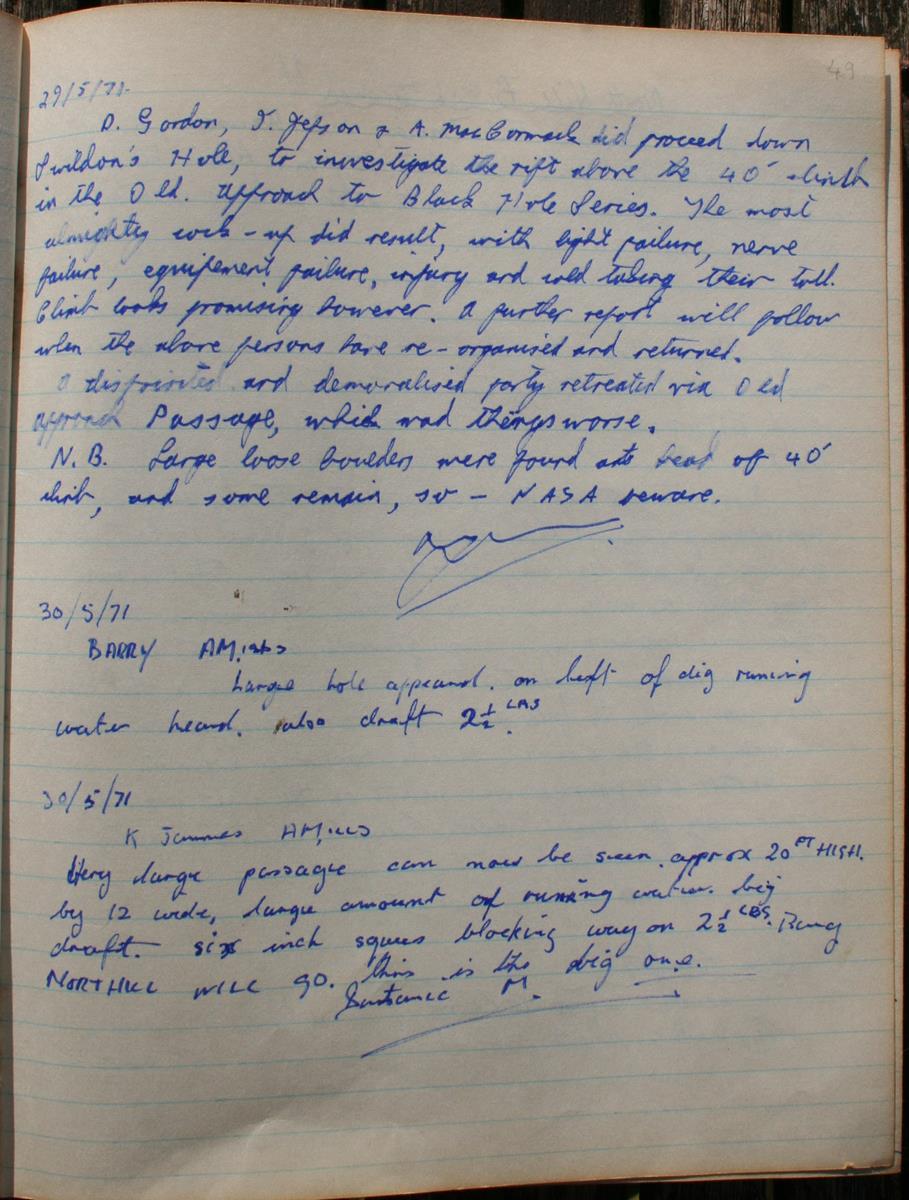 49
29/5/71.
D. Gordon, J. Jepson & A. MacCormack did proceed down
Swildon's Hole, to investigate the rift above the 40' climb
in the Old. approach to Black Hole Series. The most
almighty cock-up did result, with light failure, nerve
failure, equipement failure, injury and cold taking their toll.
Climb looks promising however. A further report will follow
when the above persons have re-organised and returned.
A dispirited and demoralised party retreated via Old
approach Passage, which mad things worse.
N.B. Large loose boulders were found at head of 40'
climb, and some remain, so - NASA beware.
30/5/71
BARRY
Large hole appeard. on left of dig running
water heard. also draft 2½ LBS.
30/5/71
K James
Very large passage can now be seen. approx 20 FT HIGH.
by 12 wide, large amount of running water. big
draft. six inch blocking way on 2½ LBS. Bang
NORTHILL WILL GO. this is the big one.
M.